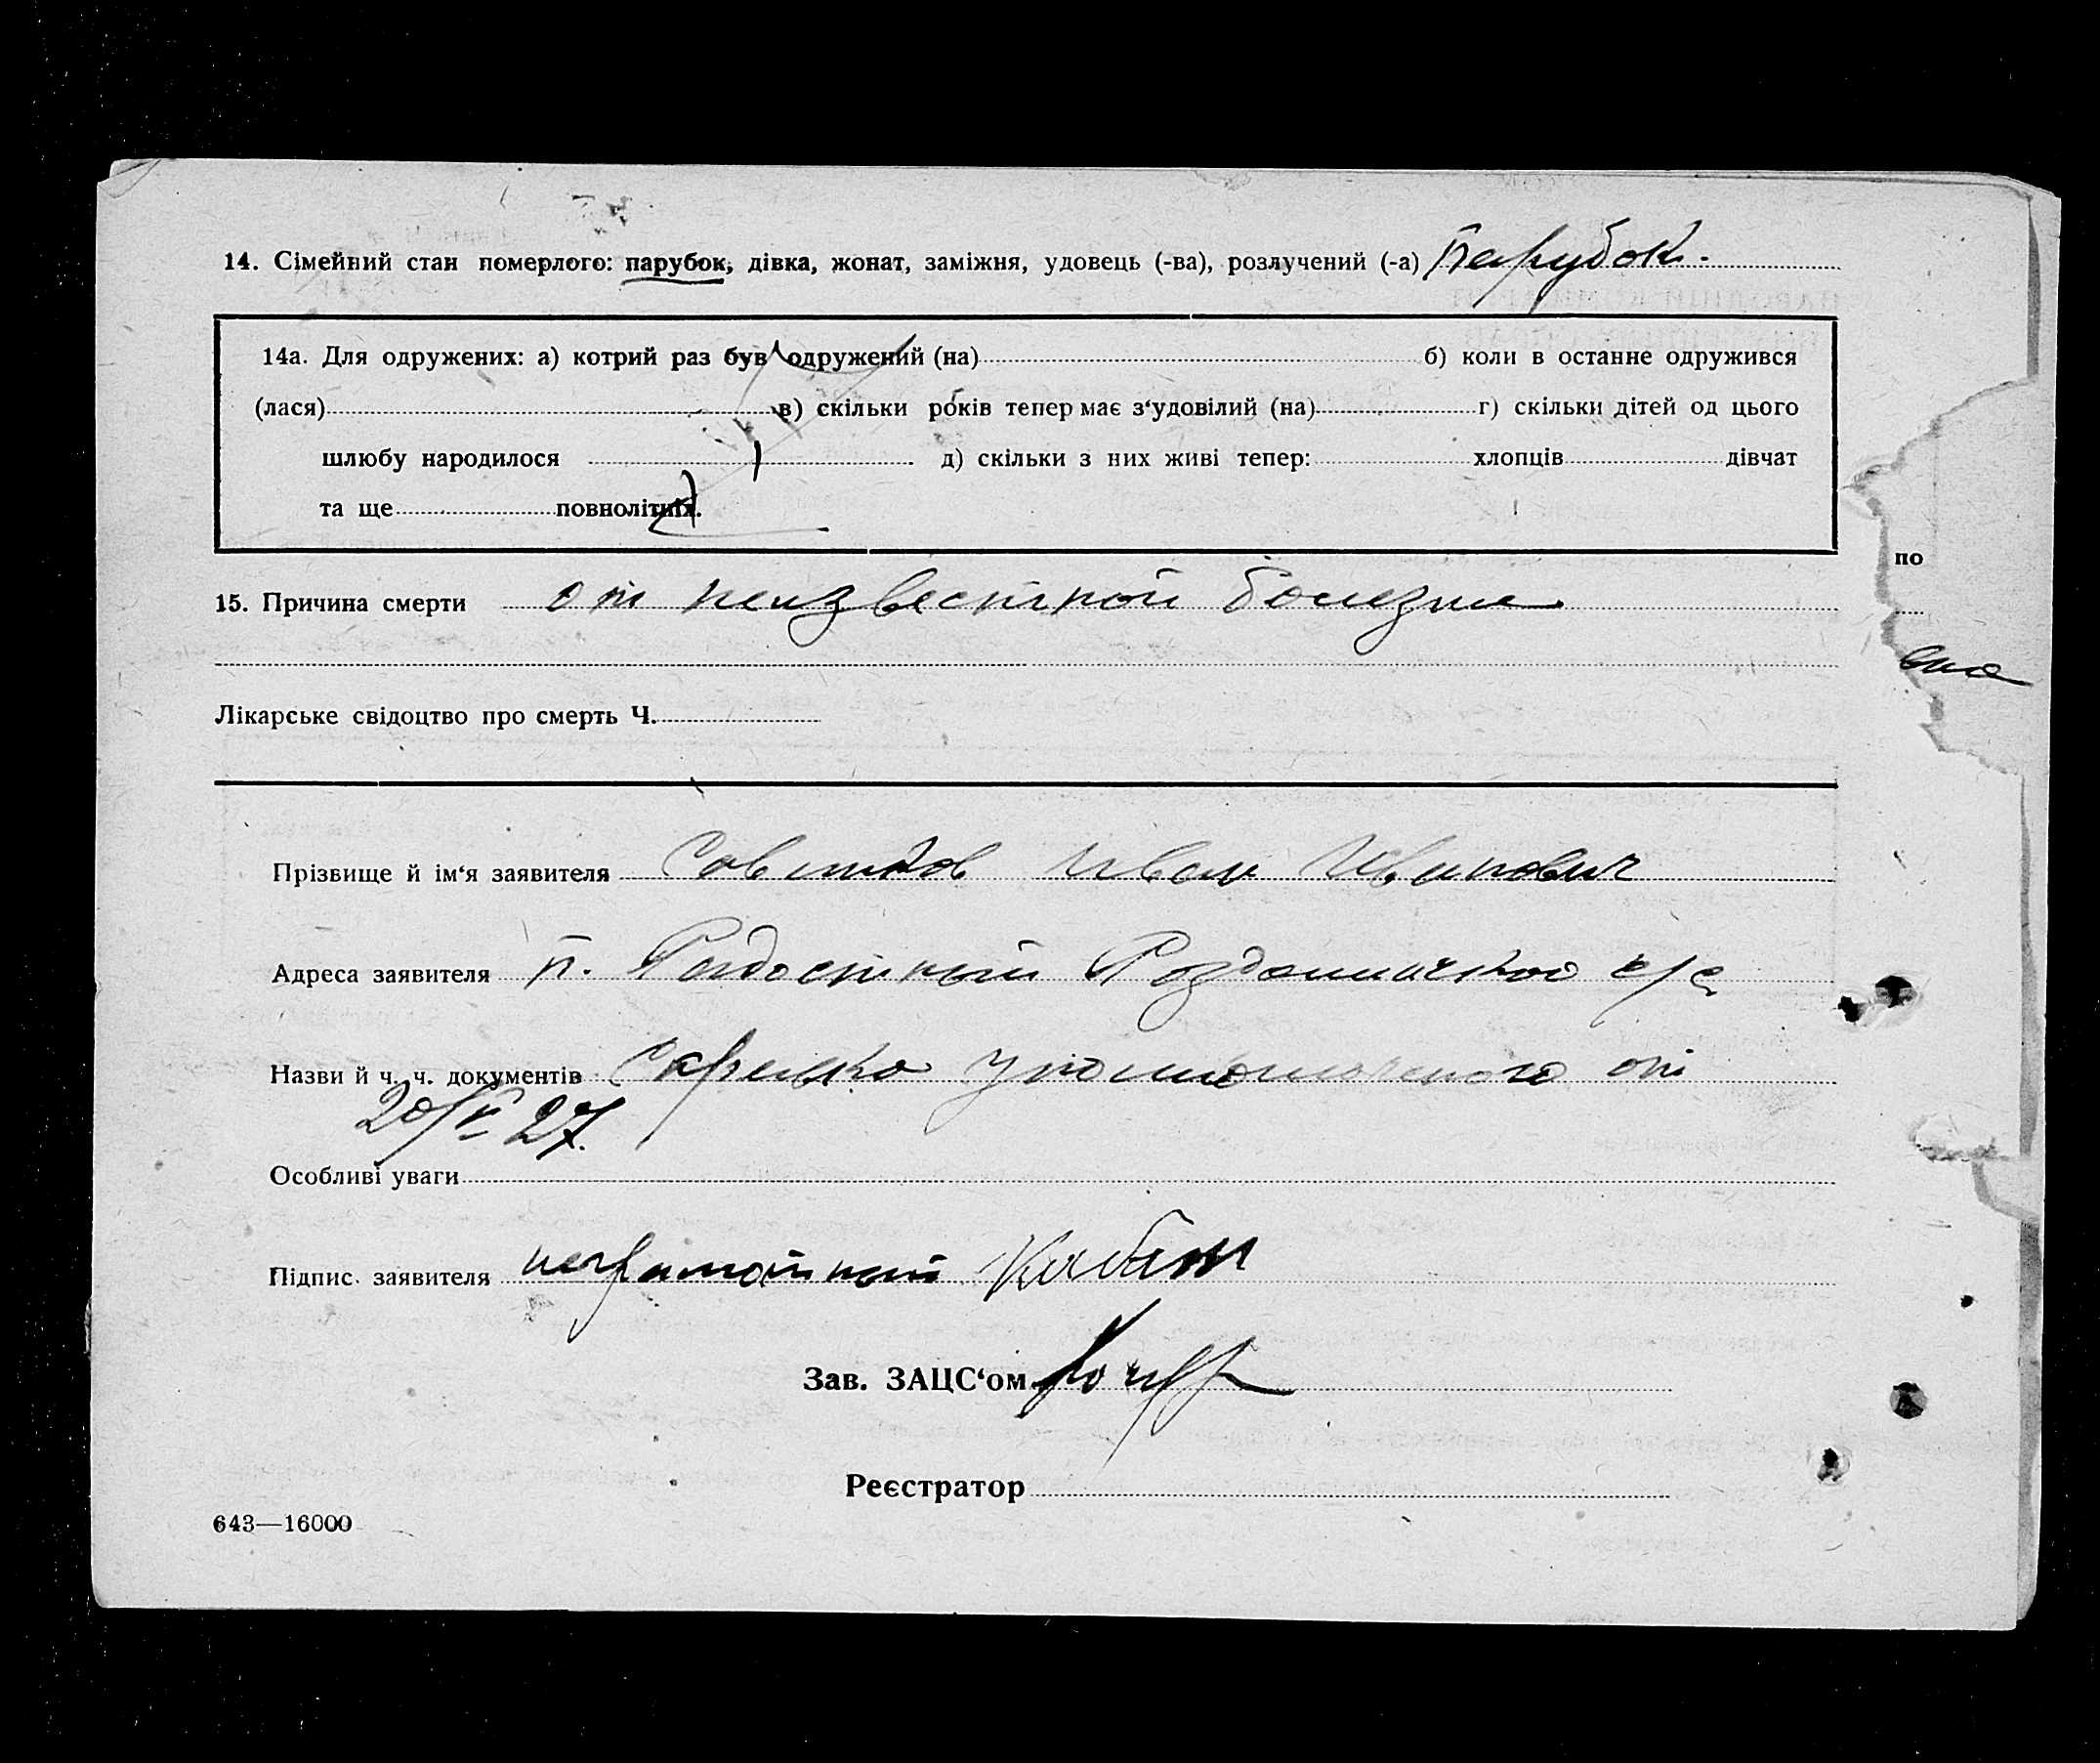 14. Сімейний стан померлого: парубок, дівка, жонат, заміжня, удовець (-ва), розлучений (-а) Парубок.
14а. Для одружених: а) котрий раз був одружений (на) б) коли в останнє одружився
(лася) в) скільки років тепер має з‘удовілий (на) г) скільки дітей од цього
шлюбу народилося д) скільки з них живі тепер: хлопців дівчат
та ще повнолітніх.
по
15. Причина смерти от неизвестной болезни
Лікарське свідоцтво про смерть Ч.
Прізвище й ім‘я заявителя Иван Иванович
Адреса заявителя п. Радостный с/с
Назви й ч. ч. документів Справка уполномоченого от
20/V 27.
Особливі уваги
Підпис. заявителя неграмотный
Зав. ЗАЦС‘ом
Реєстратор
643—16000